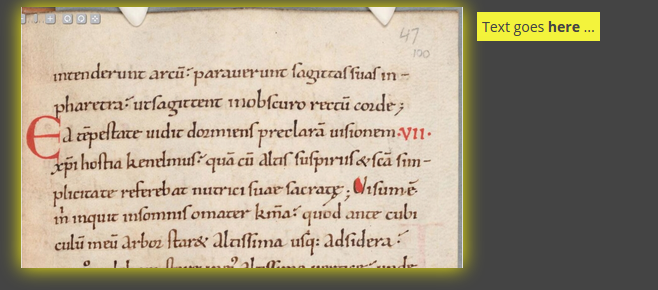 47
100
intenderunt arcū: parauerunt ſagittaſ ſuaſ in –
pharetra: ut ſagittent in obſcuro rectū corde;
Ea tēpeſtate uidit dormienſ preclarā uiſionem. VII.
xp̄i hoſtia kenelmuſ: quā cū altiſ ſuſpiriiſ & ſcā ſim-
plicitate referebat nutrici ſuae ſacratę; Uiſum ē
m̄ inquit inſomniſ o mater km̄a: quod ante cubi
culū meū arbor ſtar& altiſſima uſq: ad ſidera:
Text goes here ...